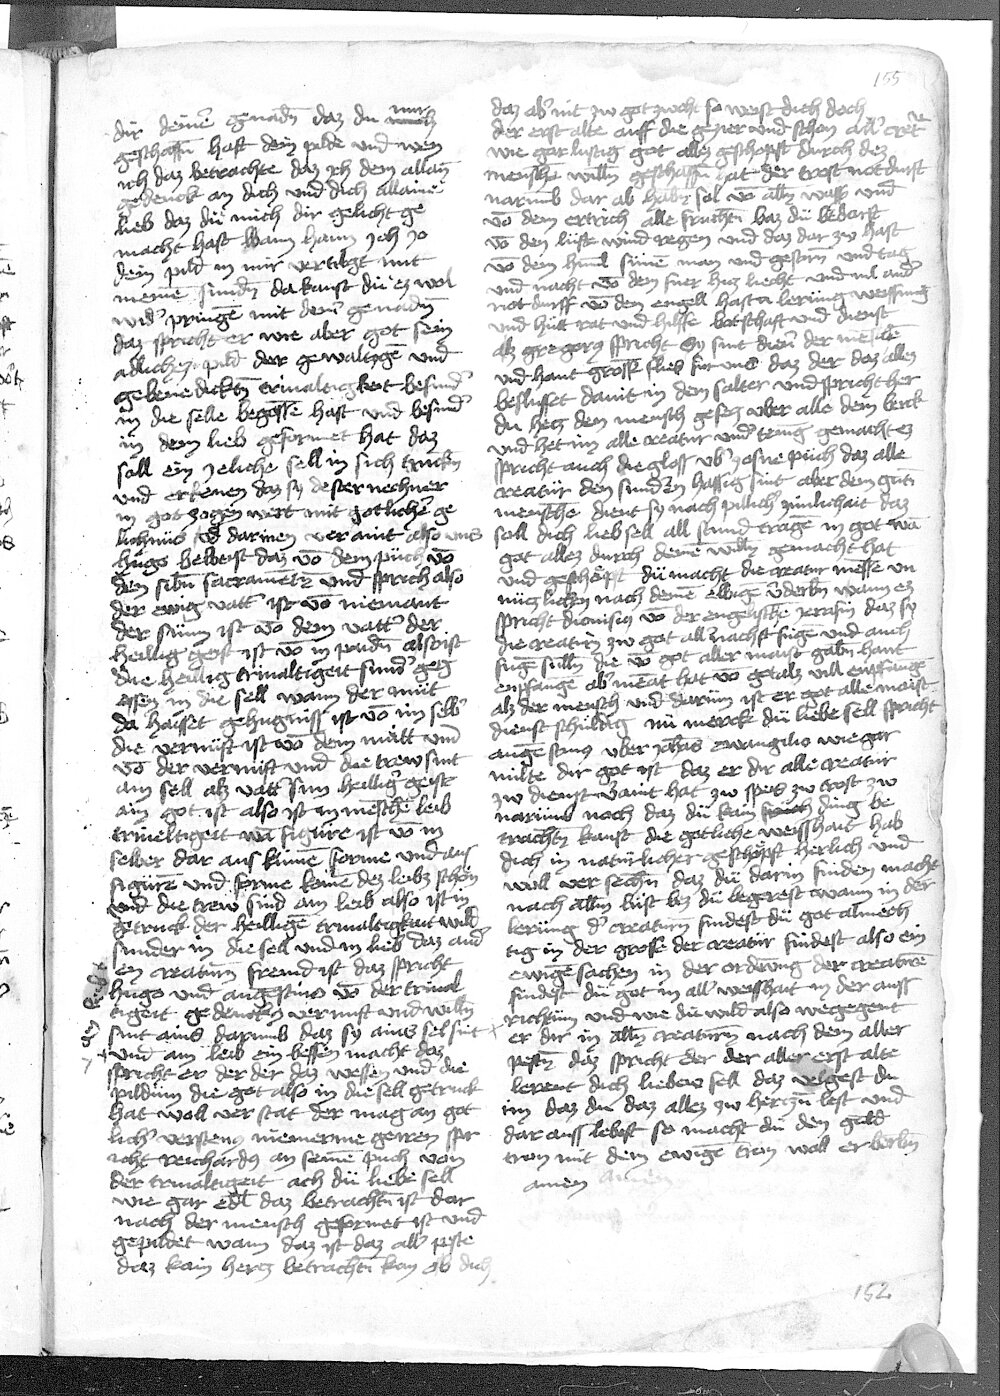 155
dir deinē genadn̄ daz du mich
geschaffn̄ hast dein pilde und wen
ich daz betrachte daz ich dem allain
gedenck an dich und dich allaine
lieb daz du mich dir gelicht ge
macht hast wann hann ich io
dein pild in mir vertilgt mit
meinē sundn̄ da kanst du ez wol
wid' pringē mit dein' genadn̄
daz spricht er wie aber got sein
adlichez pild der gewaltigē und
gebenedicktn̄ trinaltigkeit besund'
in die selle begosse hast und besund'
in dem lieb geformet hat daz
soll ein iekliche sell in sich truckn̄
und erkenen daz sy dester nechner
in got zogen wert mit gotlicher ge
lichnus und darinen veraint also uns
hugo beweist daz vō dem puch vō
den sibn̄ sacrametz und sprich also
der ewig vatt' ist vō niemant
der sunn ist vō dem vatt' der
heillig geist ist vō in paidn̄ also ist
die heillig trinaltigeit sund' geg
ossen in die sell wann der mut
da haisset gehugnuss ist vō im selb'
die vernuft ist vō dem mutt und
vō der vernuft und die trew sint
am sell alz vatt' sun heillig' geist
ain got ist also ist in menschē leib
trineltigeit wā figure ist vō in
selber dar aus kumē forme und aus
figurē und forme komē dez leibz schon
und die trew sind am leib also ist in
getruck der heilligē trinaltigkait wild
sunder in die sell und in lieb daz and'
en creaturn fremd ist daz spricht
hugo und augestinus vō der trinal
tigeit gedencken vernuft und willn̄
sint ains darumb daz sy ains sel sint
und am leib ein bessen macht daz
spricht er der der daz wessen und die
pildum die got also in die sell getruck
hat woll verstat der mag an got
lich' verstenus niemerme geirren spr
icht reichardus an seinē puch von
der trinaltigeit ach du liebe sell
wie gar edl daz betrachtn̄ ist dar
nach der mensch geformet ist und
gepildet wann daz ist daz all' peste
daz kain hercz betrachtn̄ kan ob dich
daz ab' nit zw got zwcht so weist dich doch
der erst alte auff die gezier und schon all' cret'
wie gar lustig got allez geschopft durch dez
mensche willn̄ geschaffn̄ hat der trost notdurft
narumb dar ab habn̄ sol vō alln̄ wass' und
vō dem ertrich alle fruchtn̄ baz du bedarft
vō den lufte wind regen und daz dar zw hast
vō dem himl sunē man und gestirn und tag
und nacht vō den fuer hicz liecht und vil and'
notdurff vō den engell hastu lerung weissung
und hutt rat und hilffe botschaft und dienst
alz gregorg spricht Sy sint dien' der menschē
und hant grosse flies fur uns daz der daz allez
beslusset davit in dem salter und spricht her
du hetz den mensch gesecz uber alle dein werck
und het im alle creatur und' tenig gemacht ez
spricht auch die gloss ub' josue puch daz alle
creatur den sundn̄ hassig sint aber dem gutn̄
mensche dient sy nach pillich' zimlichait daz
soll dich lieb sell all stund tragē in got wā
got allez durch deinē willn̄ gemacht hat
und geschopft du macht die creatur niesse un
nuczlichen nach deinē ewigē v'derbn̄ wann ez
spricht dionisius vō der engelische jerarsin daz sy
die creaturn zw got all' nachst fugē und auch
fugē sulln̄ die vō got aller maist gabn̄ hant
enpfangē ab' niēat hat vō got alz vill enpfangē
alz der mensch und darum ist er got alle maist
dienst schuldig nu merck du liebe sell spricht
augēstinus uber johās ewangilio wie gar
milte dir got ist daz er dir alle creatur
zw dienst vaint hat zw speis zw trost zw
narung noch daz du kain ding be
trachtn̄ kanst die gotliche weisshait hab
dich in naturlicher geschopft herlich und
woll versechn̄ daz du darin finden macht
nach allm lust wez du begerest wann in der
lerung d' creaturn̄ findest du got almech
tig in der grosse der creatur findest also ein
ewigē sachen in der ordnung der creaturē
findest du got in all' weisshait in der auss
richtum und wie du wild also wegegent
er dir in alln̄ creaturn̄ nach dem aller
pestn̄ daz spricht der der aller erst alte
lerent dich liebew sell daz volgest du
im daz du daz allez zw herczn̄ lest und
dar auss lebest so macht du den gold
tron mit dem ewigē tron woll erwerbn̄
amen
152